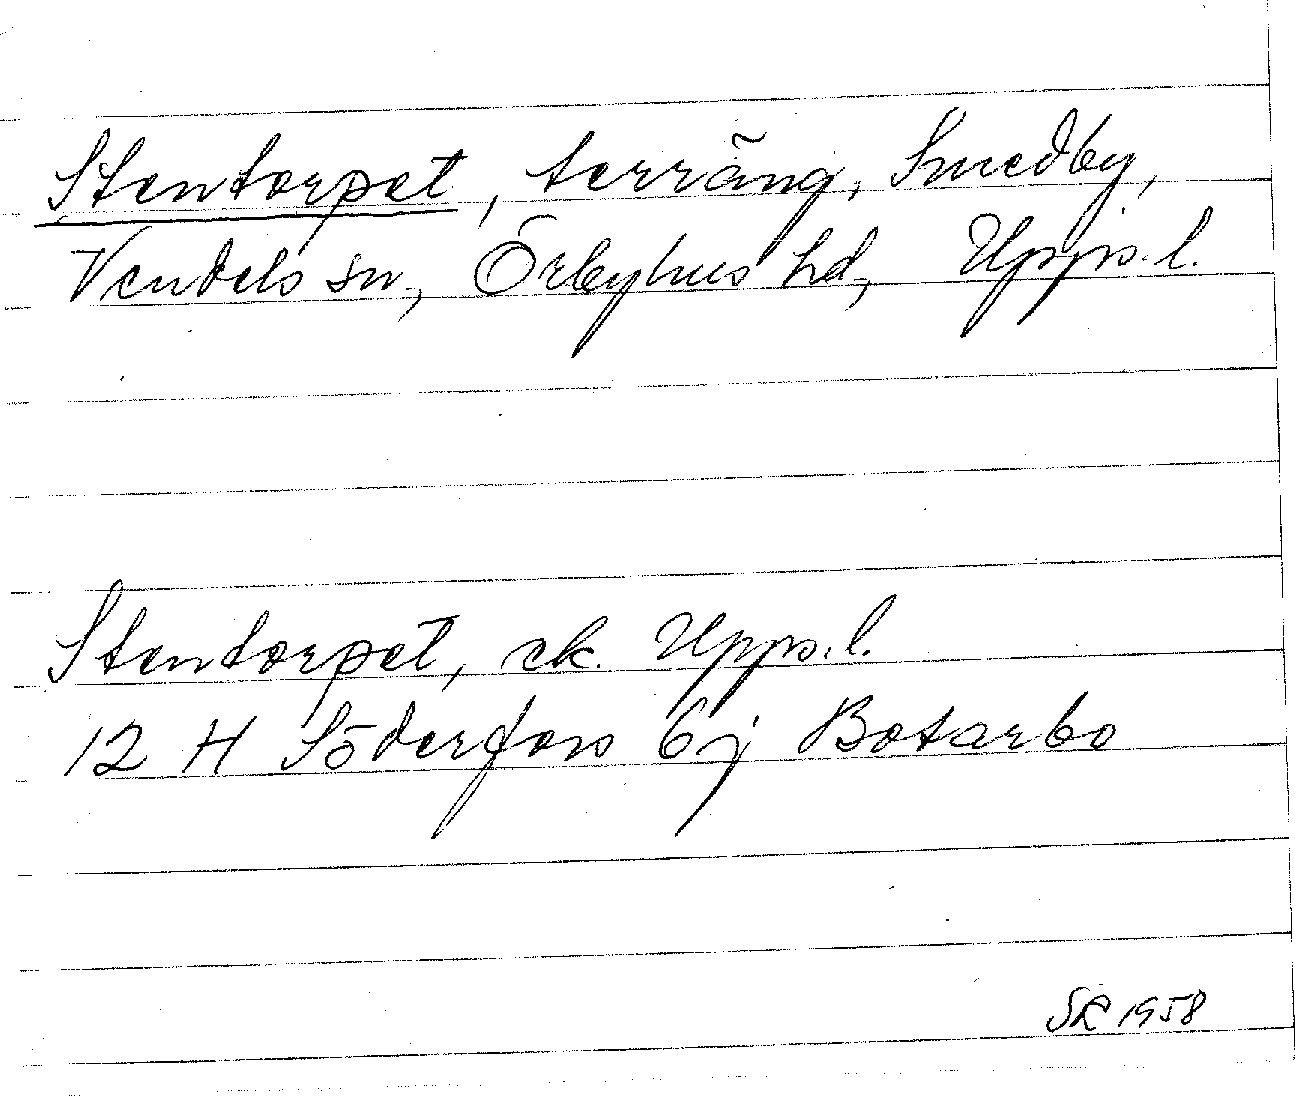 Stentorpet, terräng, Smedby,
Vendels sn, Örbyhus hd, Upps. l.
Stentorpet, ek. Upps. l.
12 H Söderfors 6j Botarbo
SR 1958